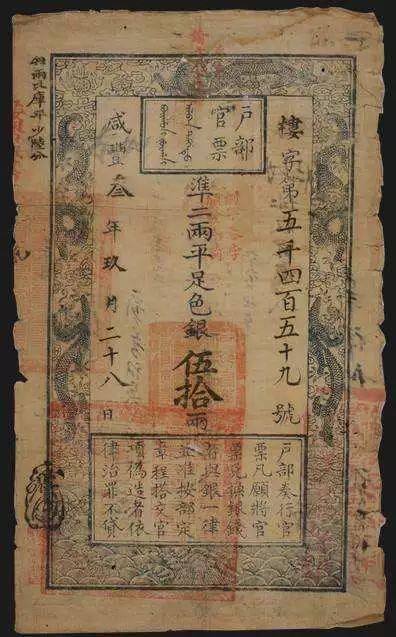 戶部
官票
樓字第五千四百五十九號
准二兩平足色銀伍拾兩
咸豐叁年玖月二十八日
每兩比庫平少陸分
戶部奏行官
票凡願將官
票兌換銀錢
者與銀一律
並准按部定
章程搭交官
項偽造者依
律治罪不貸